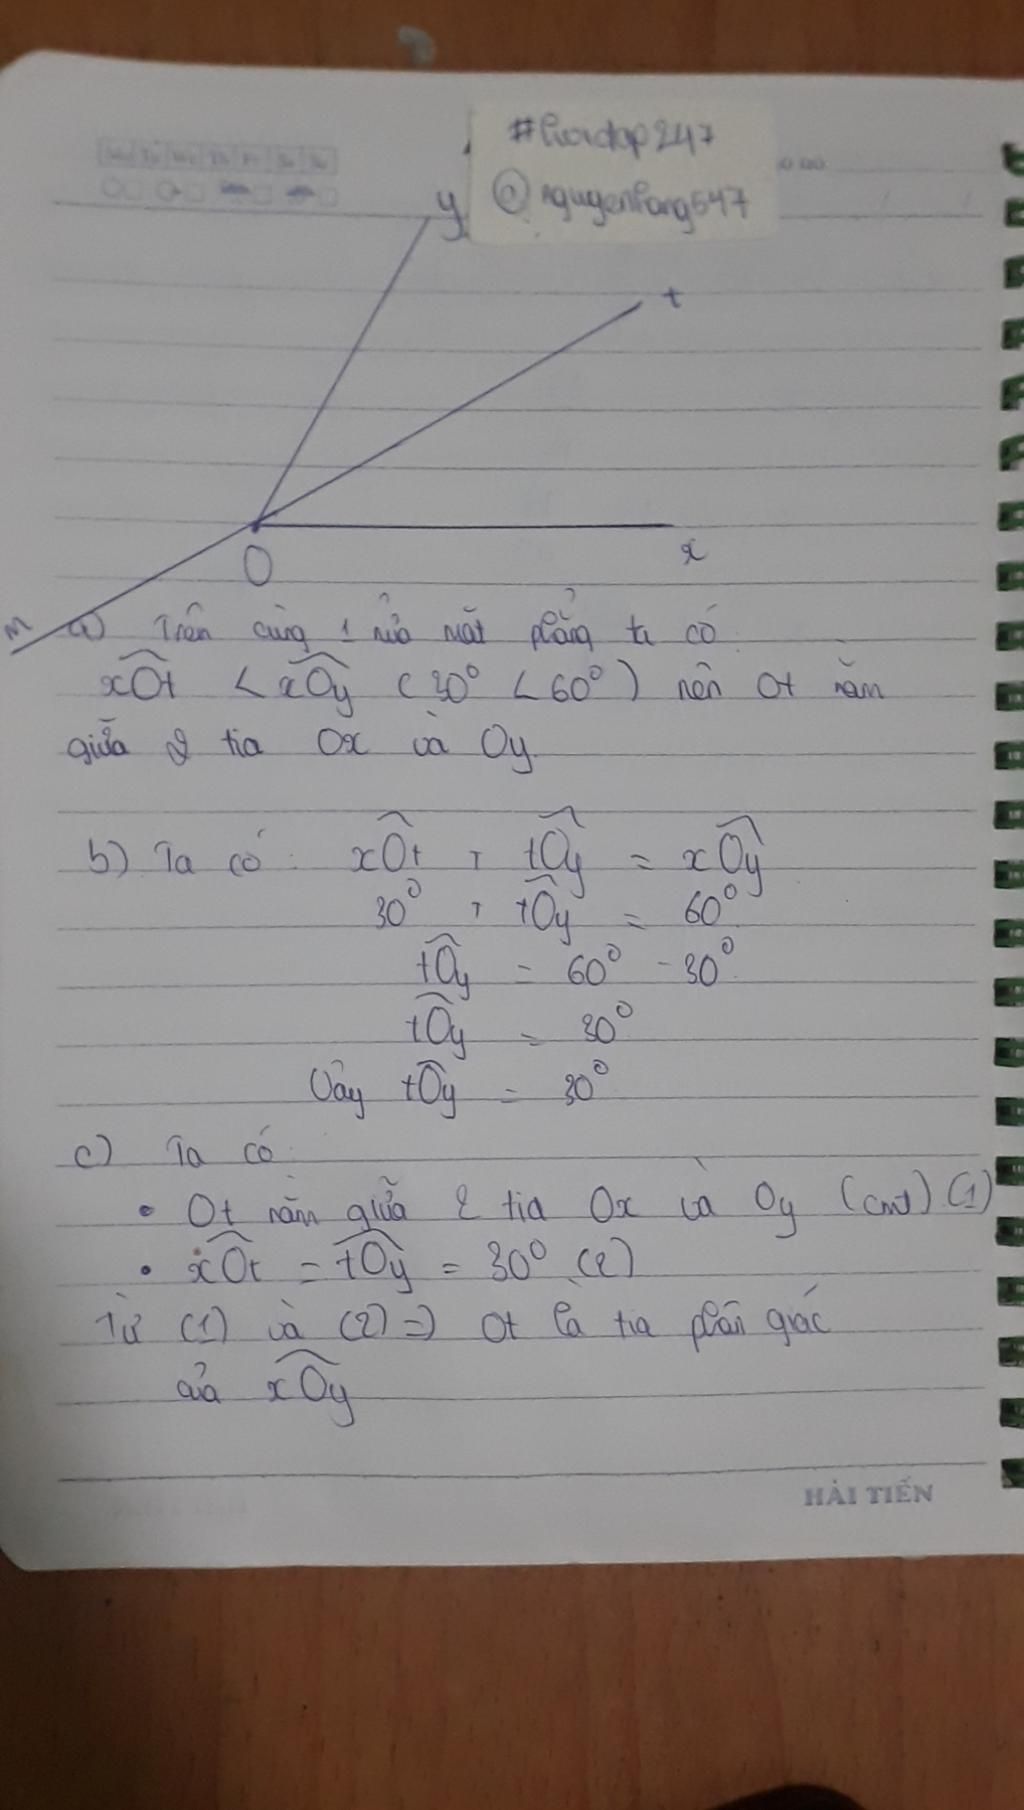 #hoidap247
@nguyenfong547
y
t
O
x
m
a) Trên cùng 1 nửa mặt phẳng ta có
xOt < xOy (30° < 60°) nên Ot nằm
giữa 2 tia Ox và Oy.
b) Ta có: xOt + tOy = xOy
30° + tOy = 60°
tOy = 60° - 30°
tOy = 30°
Vậy tOy = 30°
c) Ta có
• Ot nằm giữa 2 tia Ox và Oy (cmt) (1)
• xOt = tOy = 30° (2)
Từ (1) và (2) => Ot là tia phân giác
của xOy
HẢI TIẾN